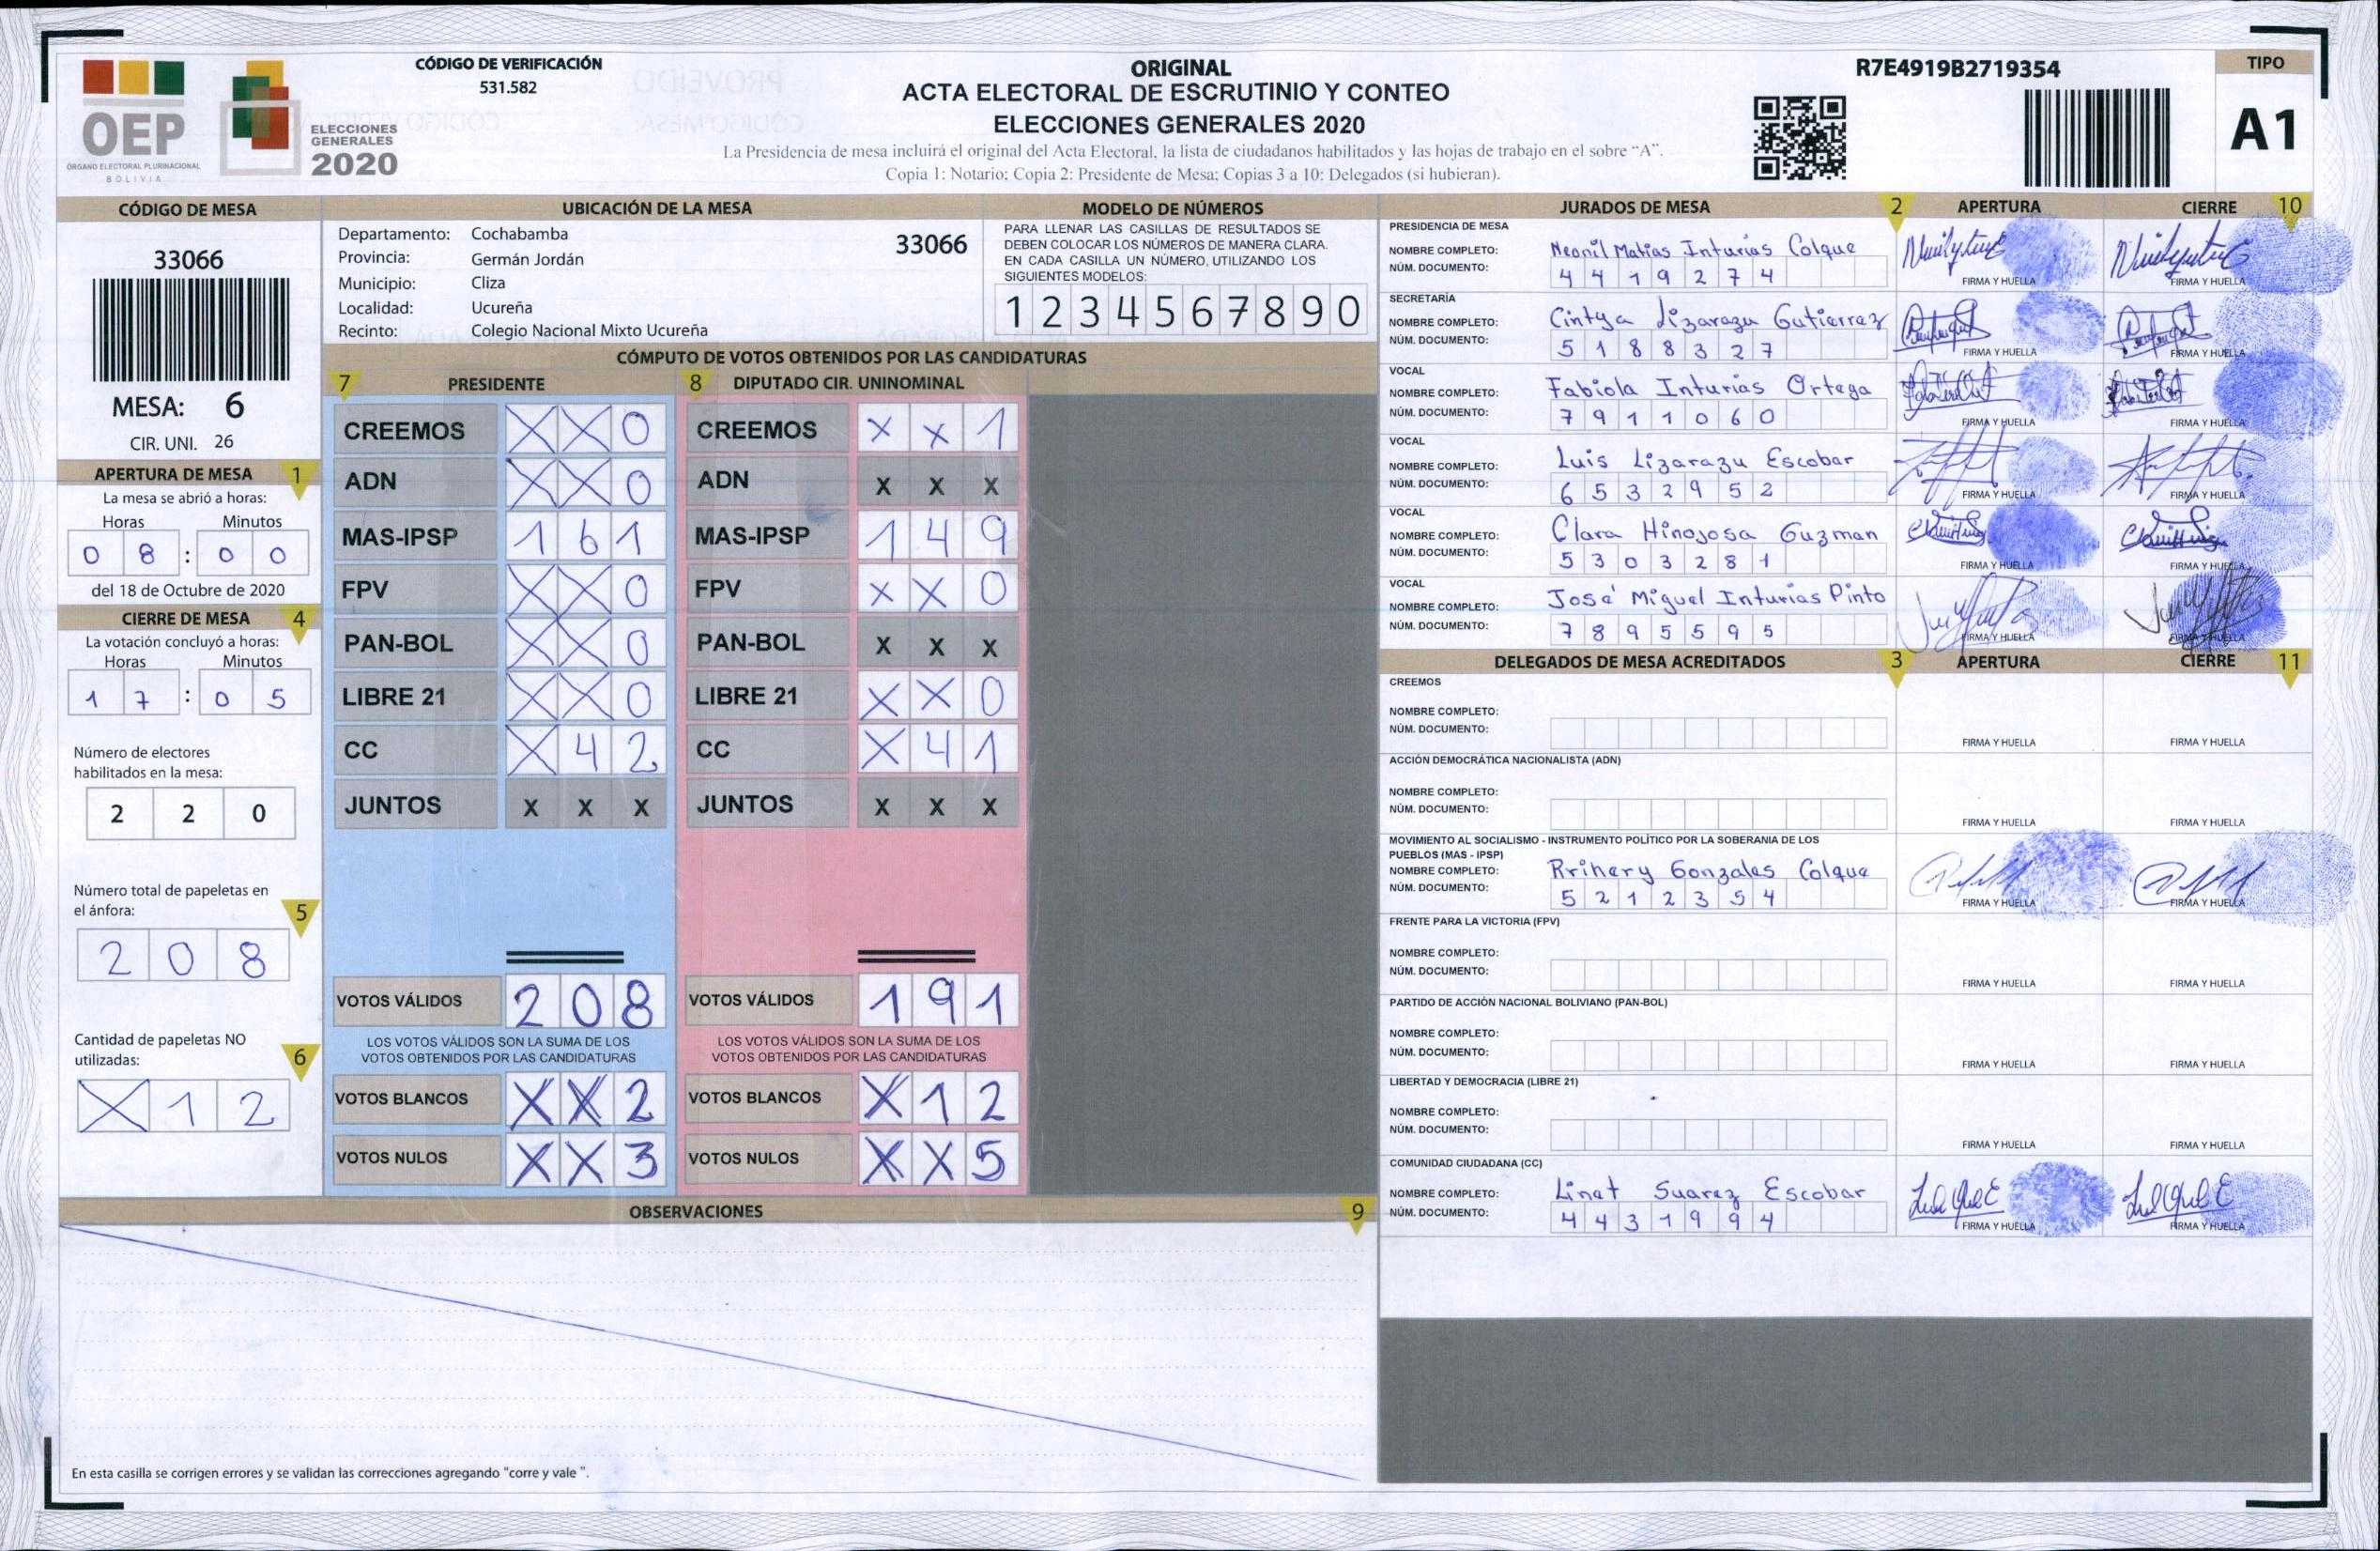 OEP
ÓRGANO ELECTORAL PLURINACIONAL
BOLIVIA
ELECCIONES
GENERALES
2020
CÓDIGO DE VERIFICACIÓN
531.582
ORIGINAL
ACTA ELECTORAL DE ESCRUTINIO Y CONTEO
ELECCIONES GENERALES 2020
La Presidencia de mesa incluirá el original del Acta Electoral, la lista de ciudadanos habilitados y las hojas de trabajo en el sobre “A”.
Copia 1: Notario; Copia 2: Presidente de Mesa; Copias 3 a 10: Delegados (si hubieran).
R7E4919B2719354
TIPO
A1
CÓDIGO DE MESA
33066
MESA: 6
CIR. UNI. 26
APERTURA DE MESA 1
La mesa se abrió a horas:
Horas Minutos
0 8 : 0 0
del 18 de Octubre de 2020
CIERRE DE MESA 4
La votación concluyó a horas:
Horas Minutos
1 7 : 0 5
Número de electores
habilitados en la mesa:
2 2 0
Número total de papeletas en
el ánfora: 5
2 0 8
Cantidad de papeletas NO
utilizadas: 6
X 1 2
UBICACIÓN DE LA MESA
Departamento: Cochabamba 33066
Provincia: Germán Jordán
Municipio: Cliza
Localidad: Ucureña
Recinto: Colegio Nacional Mixto Ucureña
MODELO DE NÚMEROS
PARA LLENAR LAS CASILLAS DE RESULTADOS SE
DEBEN COLOCAR LOS NÚMEROS DE MANERA CLARA.
EN CADA CASILLA UN NÚMERO, UTILIZANDO LOS
SIGUIENTES MODELOS:
1 2 3 4 5 6 7 8 9 0
CÓMPUTO DE VOTOS OBTENIDOS POR LAS CANDIDATURAS
7 PRESIDENTE 8 DIPUTADO CIR. UNINOMINAL
CREEMOS X X 0 CREEMOS X X 1
ADN X X 0 ADN X X X
MAS-IPSP 1 6 1 MAS-IPSP 1 4 9
FPV X X 0 FPV X X 0
PAN-BOL X X 0 PAN-BOL X X X
LIBRE 21 X X 0 LIBRE 21 X X 0
CC X 4 2 CC X 4 1
JUNTOS X X X JUNTOS X X X
VOTOS VÁLIDOS 2 0 8 VOTOS VÁLIDOS 1 9 1
LOS VOTOS VÁLIDOS SON LA SUMA DE LOS LOS VOTOS VÁLIDOS SON LA SUMA DE LOS
VOTOS OBTENIDOS POR LAS CANDIDATURAS VOTOS OBTENIDOS POR LAS CANDIDATURAS
VOTOS BLANCOS X X 2 VOTOS BLANCOS X 1 2
VOTOS NULOS X X 3 VOTOS NULOS X X 5
OBSERVACIONES 9
En esta casilla se corrigen errores y se validan las correcciones agregando "corre y vale ".
JURADOS DE MESA 2 APERTURA CIERRE 10
PRESIDENCIA DE MESA
NOMBRE COMPLETO: Neonil Matias Inturias Colque
NÚM. DOCUMENTO: 4 4 1 9 2 7 4
FIRMA Y HUELLA FIRMA Y HUELLA
SECRETARÍA
NOMBRE COMPLETO: Cintya Lizarazu Gutierrez
NÚM. DOCUMENTO: 5 1 8 8 3 2 7
FIRMA Y HUELLA FIRMA Y HUELLA
VOCAL
NOMBRE COMPLETO: Fabiola Inturias Ortega
NÚM. DOCUMENTO: 7 9 1 1 0 6 0
FIRMA Y HUELLA FIRMA Y HUELLA
VOCAL
NOMBRE COMPLETO: Luis Lizarazu Escobar
NÚM. DOCUMENTO: 6 5 3 2 9 5 2
FIRMA Y HUELLA FIRMA Y HUELLA
VOCAL
NOMBRE COMPLETO: Clara Hinojosa Guzman
NÚM. DOCUMENTO: 5 3 0 3 2 8 1
FIRMA Y HUELLA FIRMA Y HUELLA
VOCAL
NOMBRE COMPLETO: José Miguel Inturias Pinto
NÚM. DOCUMENTO: 7 8 9 5 5 9 5
FIRMA Y HUELLA FIRMA Y HUELLA
DELEGADOS DE MESA ACREDITADOS 3 APERTURA CIERRE 11
CREEMOS
NOMBRE COMPLETO:
NÚM. DOCUMENTO:
FIRMA Y HUELLA FIRMA Y HUELLA
ACCIÓN DEMOCRÁTICA NACIONALISTA (ADN)
NOMBRE COMPLETO:
NÚM. DOCUMENTO:
FIRMA Y HUELLA FIRMA Y HUELLA
MOVIMIENTO AL SOCIALISMO - INSTRUMENTO POLÍTICO POR LA SOBERANIA DE LOS
PUEBLOS (MAS - IPSP)
NOMBRE COMPLETO: Rrihery Gonzales Colque
NÚM. DOCUMENTO: 5 2 1 2 3 5 4
FIRMA Y HUELLA FIRMA Y HUELLA
FRENTE PARA LA VICTORIA (FPV)
NOMBRE COMPLETO:
NÚM. DOCUMENTO:
FIRMA Y HUELLA FIRMA Y HUELLA
PARTIDO DE ACCIÓN NACIONAL BOLIVIANO (PAN-BOL)
NOMBRE COMPLETO:
NÚM. DOCUMENTO:
FIRMA Y HUELLA FIRMA Y HUELLA
LIBERTAD Y DEMOCRACIA (LIBRE 21)
NOMBRE COMPLETO:
NÚM. DOCUMENTO:
FIRMA Y HUELLA FIRMA Y HUELLA
COMUNIDAD CIUDADANA (CC)
NOMBRE COMPLETO: Linet Suarez Escobar
NÚM. DOCUMENTO: 4 4 3 1 9 9 4
FIRMA Y HUELLA FIRMA Y HUELLA